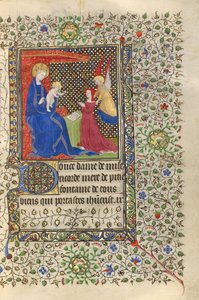 Douce dame de mise
ricorde mere de pitie
fontaine de tous
biens qui portastes ihucrist. ix